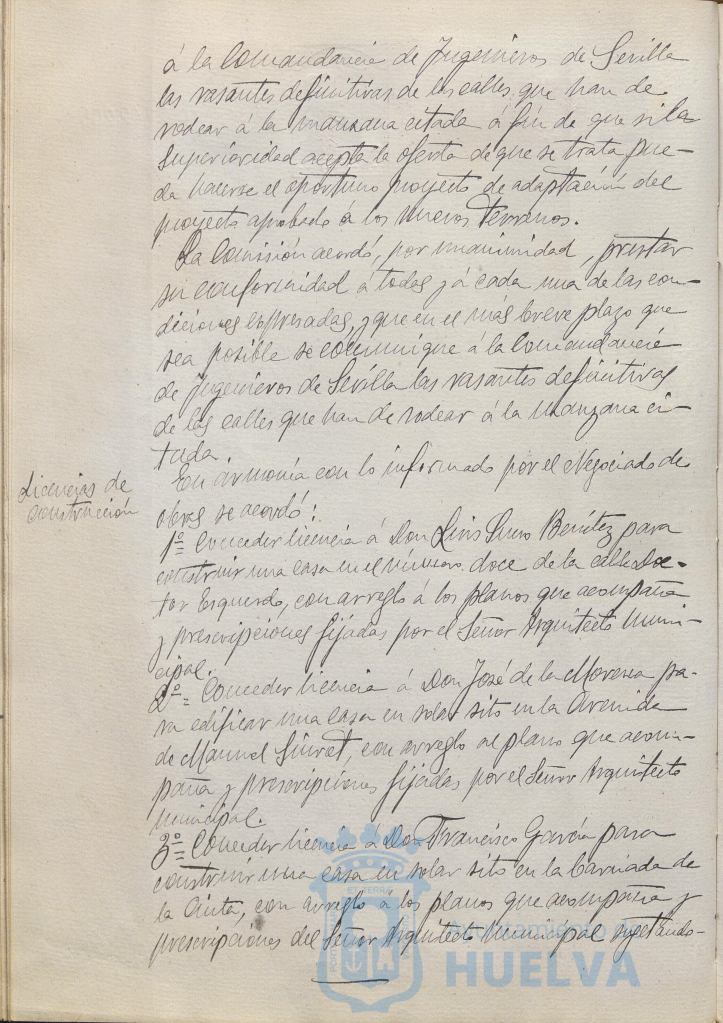 á la Comandancia de Ingenieros de Sevilla
las rasantes definitivas de las calles que han de
rodear á la manzana citada á fin de que si la
Superioridad acepta la oferta de que se trata pue-
da hacerse el oportuno proyecto de adaptación del
proyecto aprobado á los nuevos terrenos.
La Comisión acordó, por unanimidad, prestar
su conformidad á todas y á cada una de las con-
diciones expresadas, y que en el más breve plazo que
sea posible se comunique á la Comandancia
de Ingenieros de Sevilla las rasantes definitivas
de las calles que han de rodear á la manzana ci-
tada.
Licencias de
construcción
En armonía con lo informado por el Negociado de
obras se acordó:
1º = Conceder licencia á Don Luis Suero Benítez para
construir una casa en el número doce de la calle Doc-
tor Esquerdo, con arreglo á los planos que acompaña
y prescripciones fijadas por el Señor Arquitecto Muni-
cipal.
2º = Conceder licencia á Don José de la Morena pa-
ra edificar una casa en solar sito en la Avenida
de Manuel Siurot, con arreglo al plano que acom-
paña y prescripciones fijadas por el Señor Arquitecto
Municipal.
3º = Conceder licencia á Don Francisco García para
construir una casa en solar sito en la barriada de
la Cinta, con arreglo á los planos que acompaña y
prescripciones del Señor Arquitecto Municipal sujetándo-
Ayuntamiento de
HUELVA